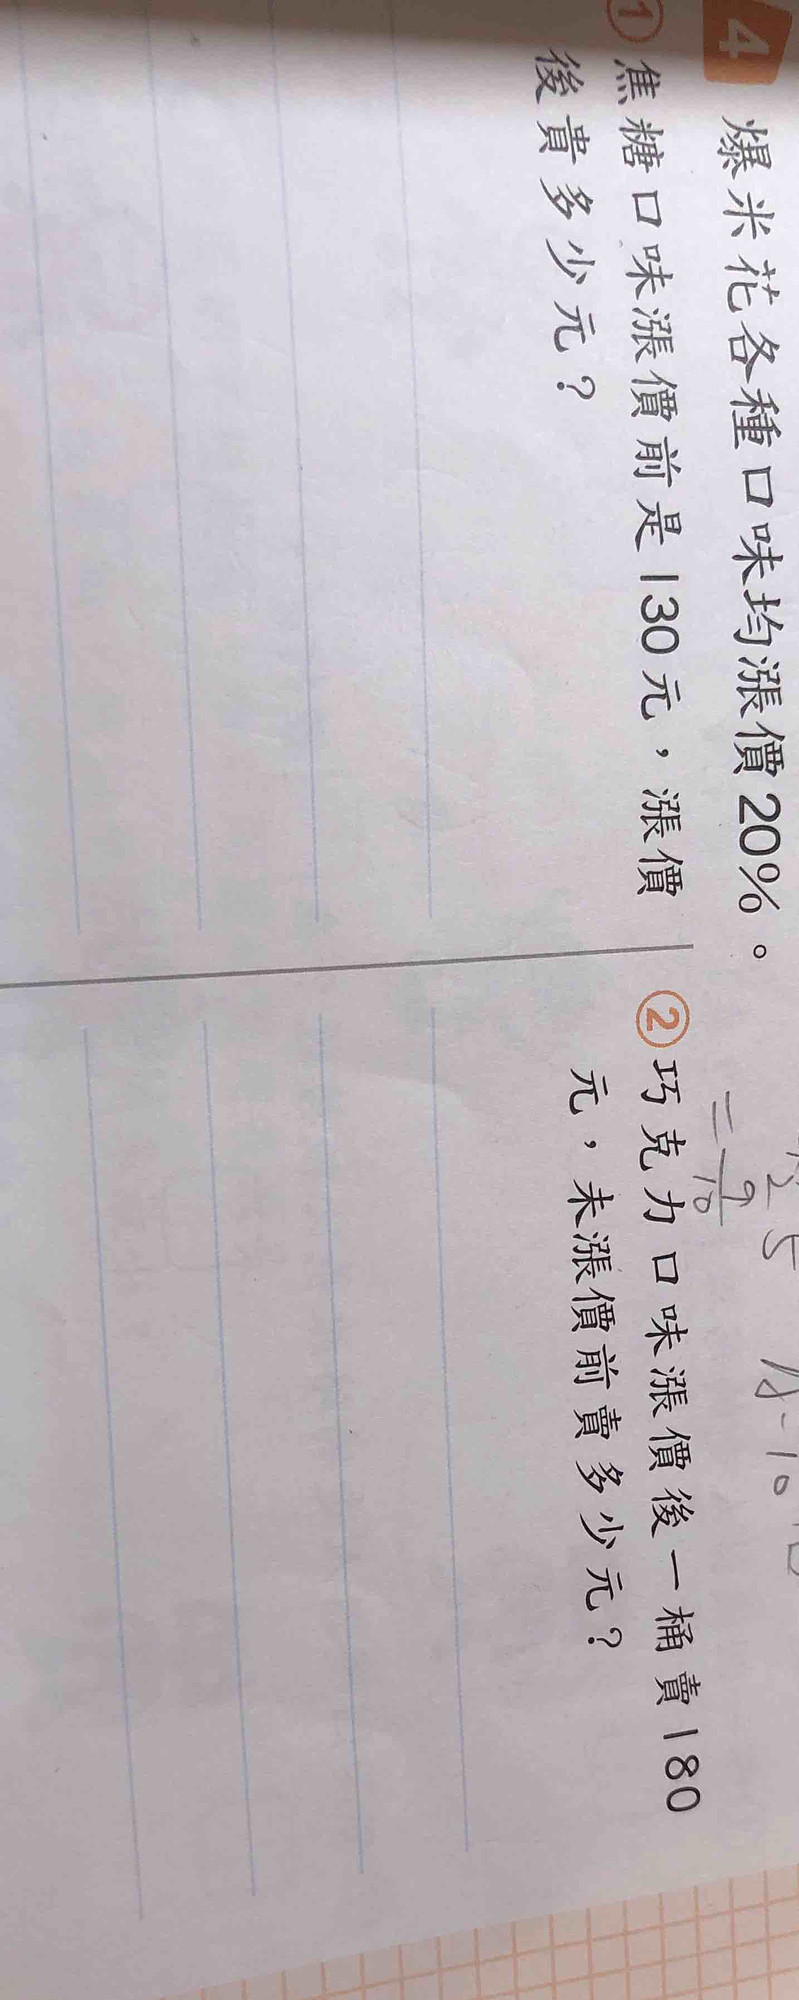 4 爆米花各種口味均漲價20%。
① 焦糖口味漲價前是130元，漲價
後貴多少元？
= 9/10
② 巧克力口味漲價後一桶賣180
元，未漲價前賣多少元？